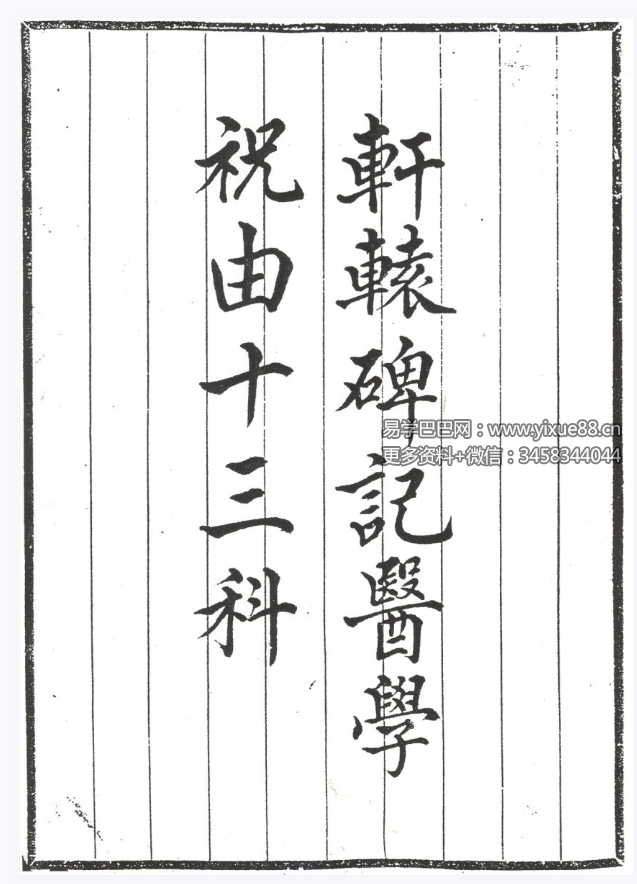 軒轅碑記醫學
祝由十三科
易学巴巴网：www.yixue88.cn
更多资料+微信：3458344044